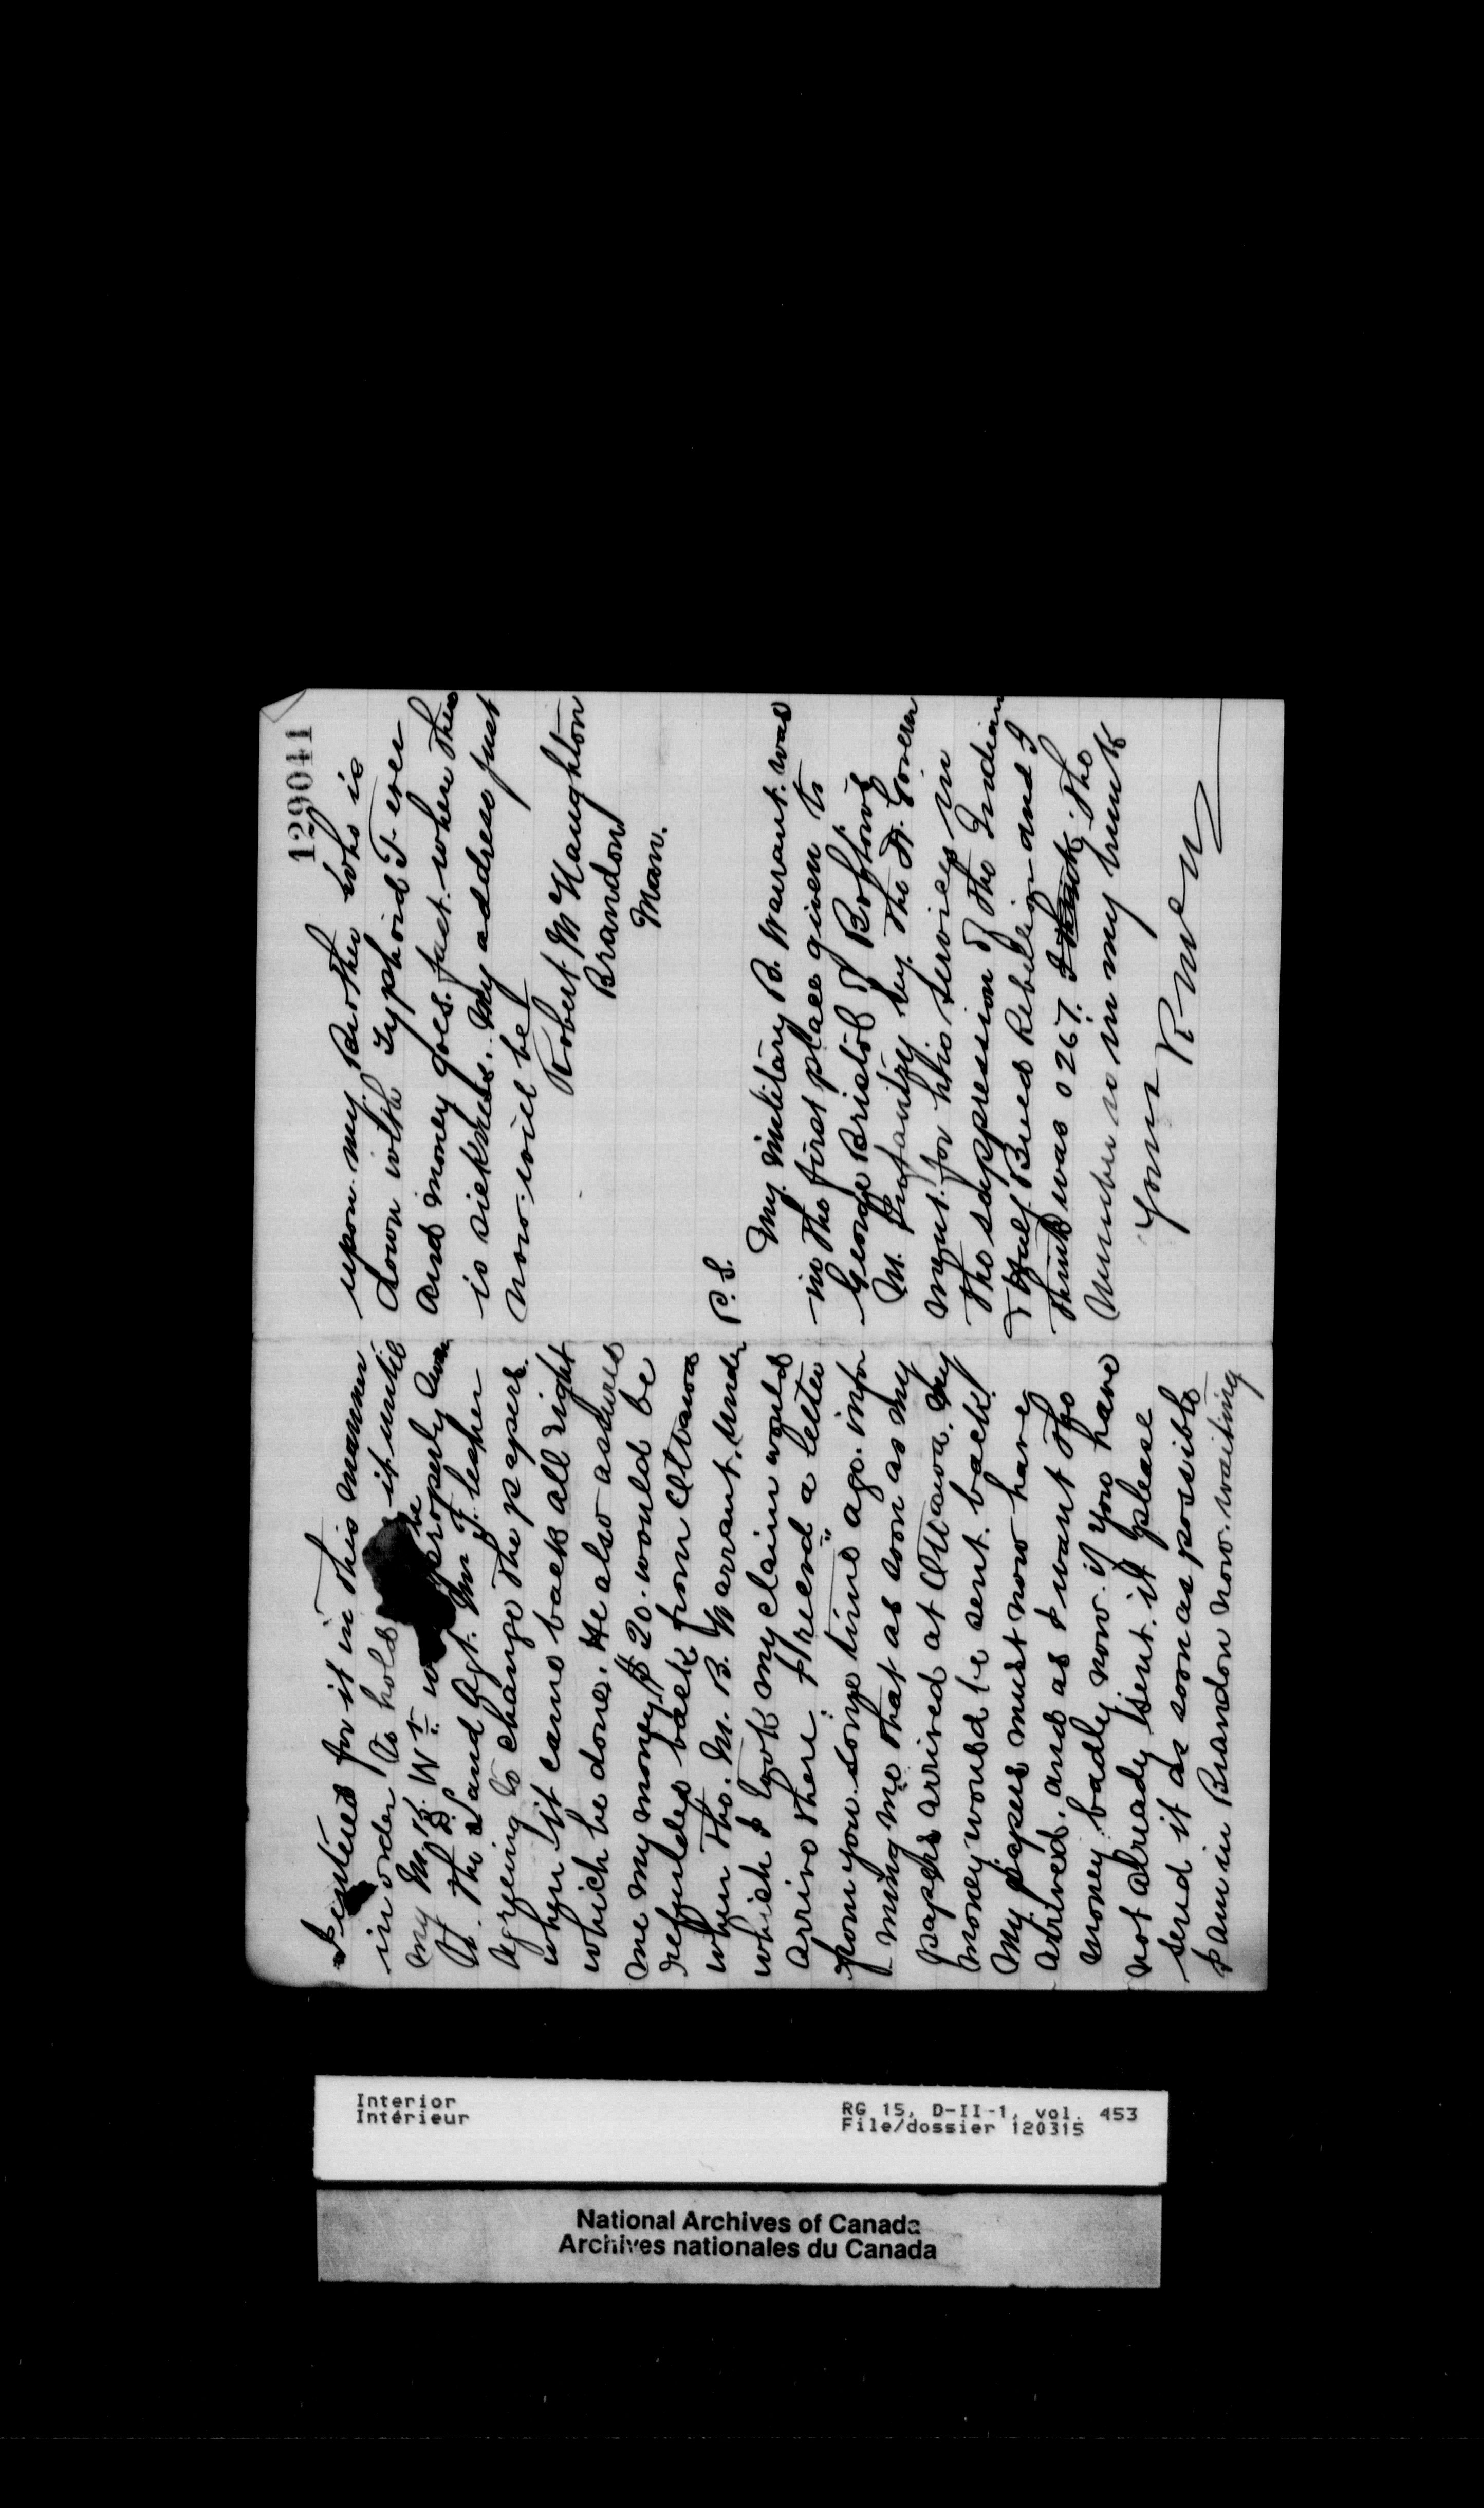 I entered for it in this manner
in order to hold it until
my M. B. Wt. be properly
the Land Agt. Mr
agreeing to change the papers.
when it came back all right
which he done. He also assured
me my money $20. would be
refunded back from Ottawa
when the M. B. Warrant, under
which I took my claim would
arrive there. I recvd a letter
from you some time ago. infor
-ming me that as soon as my
papers arrived at Ottawa. My
money would be sent back.
My papers must now have
arrived, and as I want the
money badly now if you have
not already sent it please
send it as soon as possible
I am in Brandon now waiting
129041
upon my Brother who is
down with Typhoid F ever
and money goes fast when there
is sickness. My address just
now will be
Robert McNaughton
Brandon
Man.
P. S.
My Military B. Warrant was
in the first place given to
George Bristol of
M. Infantry by the D. Govern
ment for his services in
the suppression of the Indian
& Half Breed Rebellion and I
think was 0267. I think. The
number is in my trunk
Yours R McN
Interior
Intérieur
RG 15, D-II-1, vol. 453
File/dossier 120315
National Archives of Canada
Archives nationales du Canada